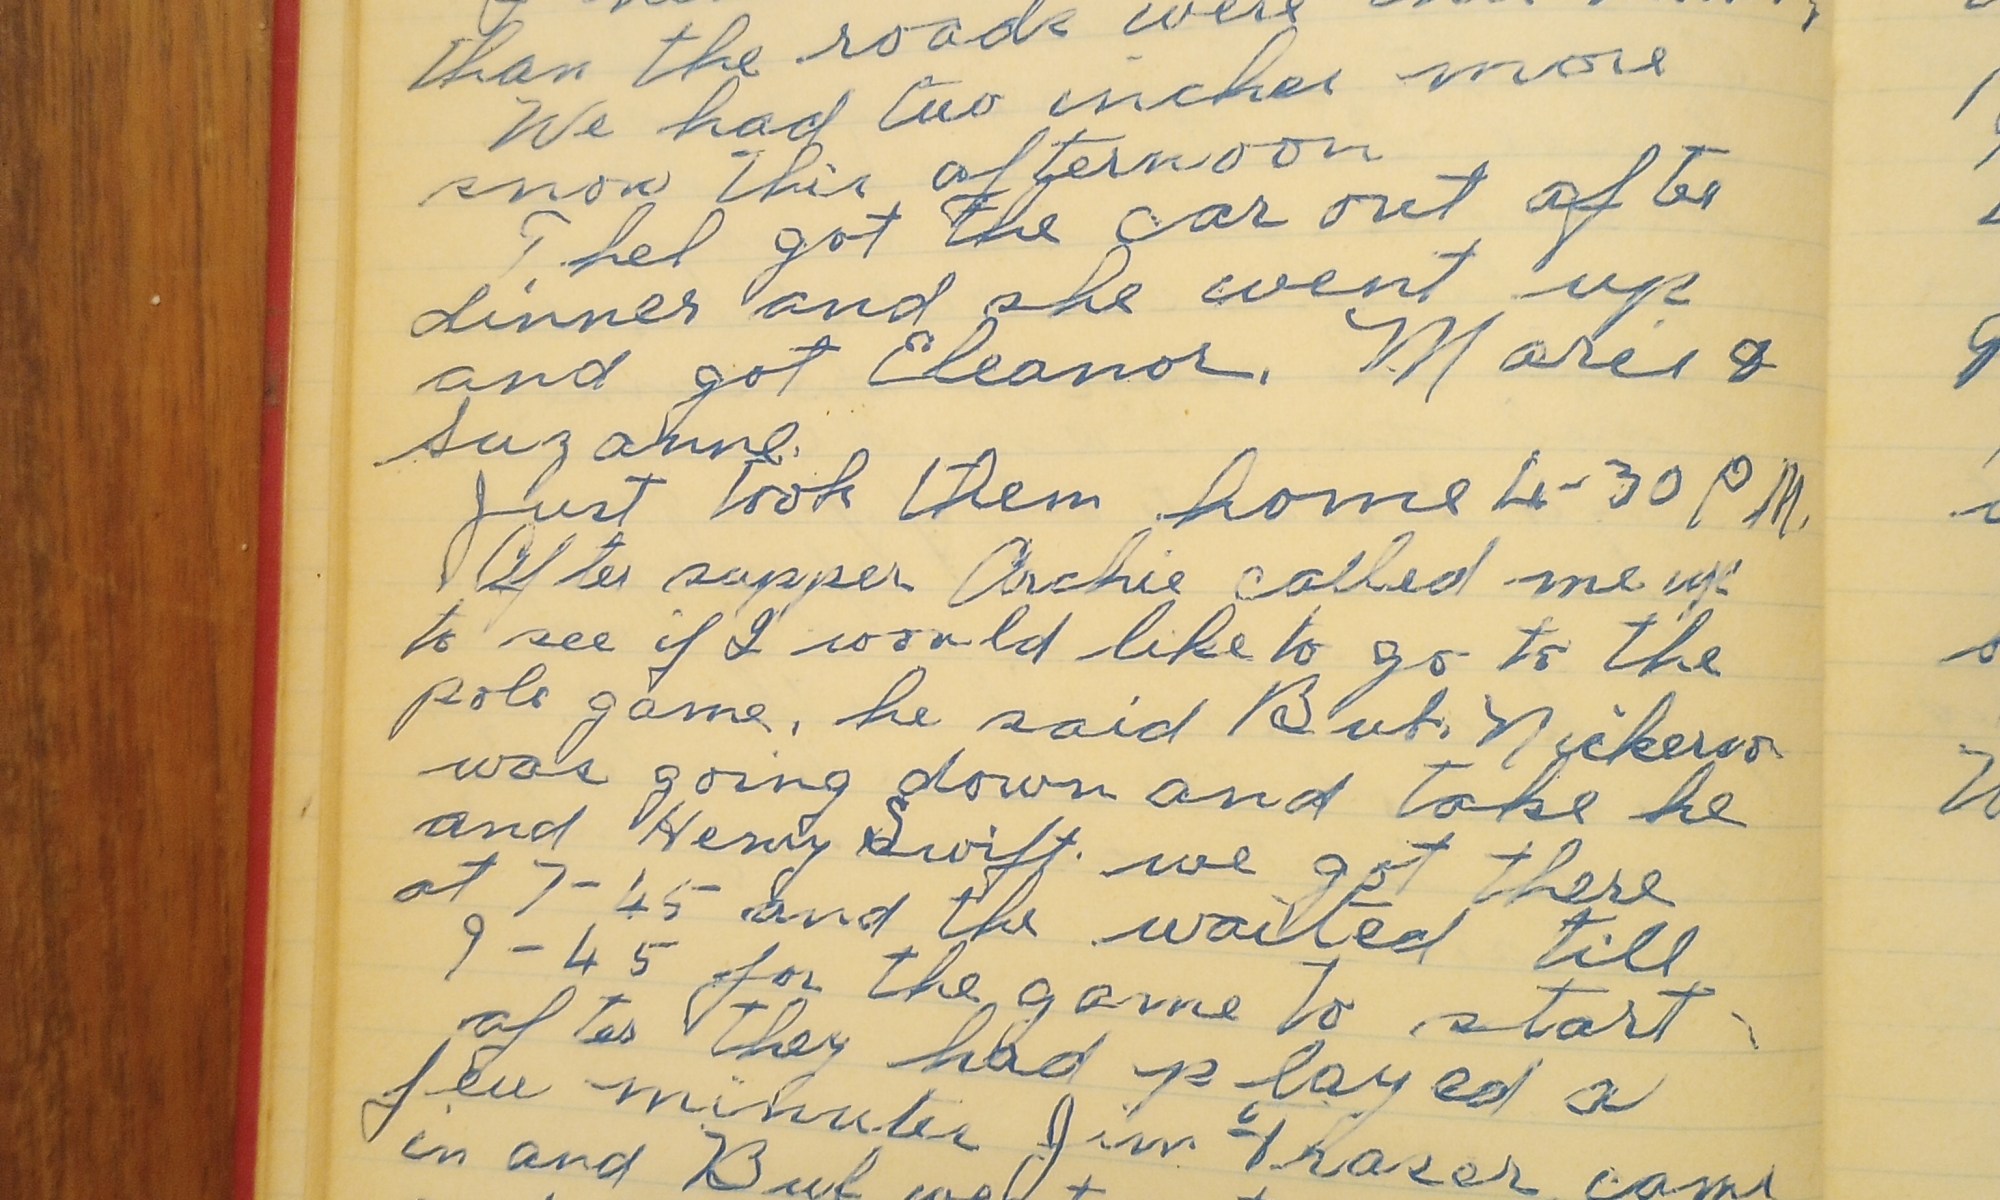 than the roads were
We had two inches more
snow this afternoon
Thel got the car out after
dinner and she went up
and got Eleanor, Marie &
Suzanne.
Just took them home 4-30 P M.
After supper Archie called me up
to see if I would like to go to the
polo game, he said But. Nickerson
was going down and take he
and Henry Swift. we got there
at 7-45 and the waited till
9-45 for the game to start
after they had played a
few minutes Jim Frazer came
in and But